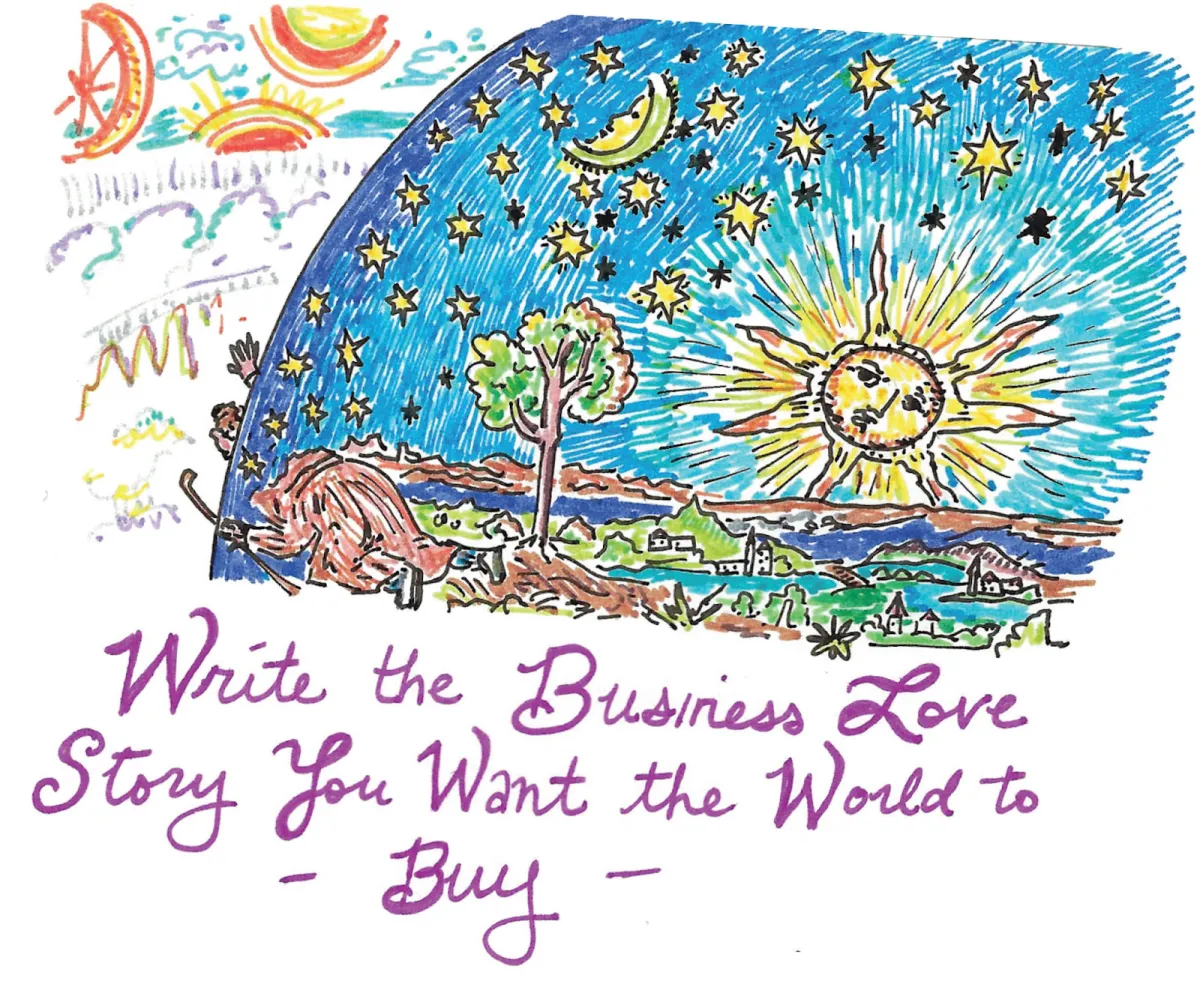 Write the Business Love
Story You Want the World to
- Buy -